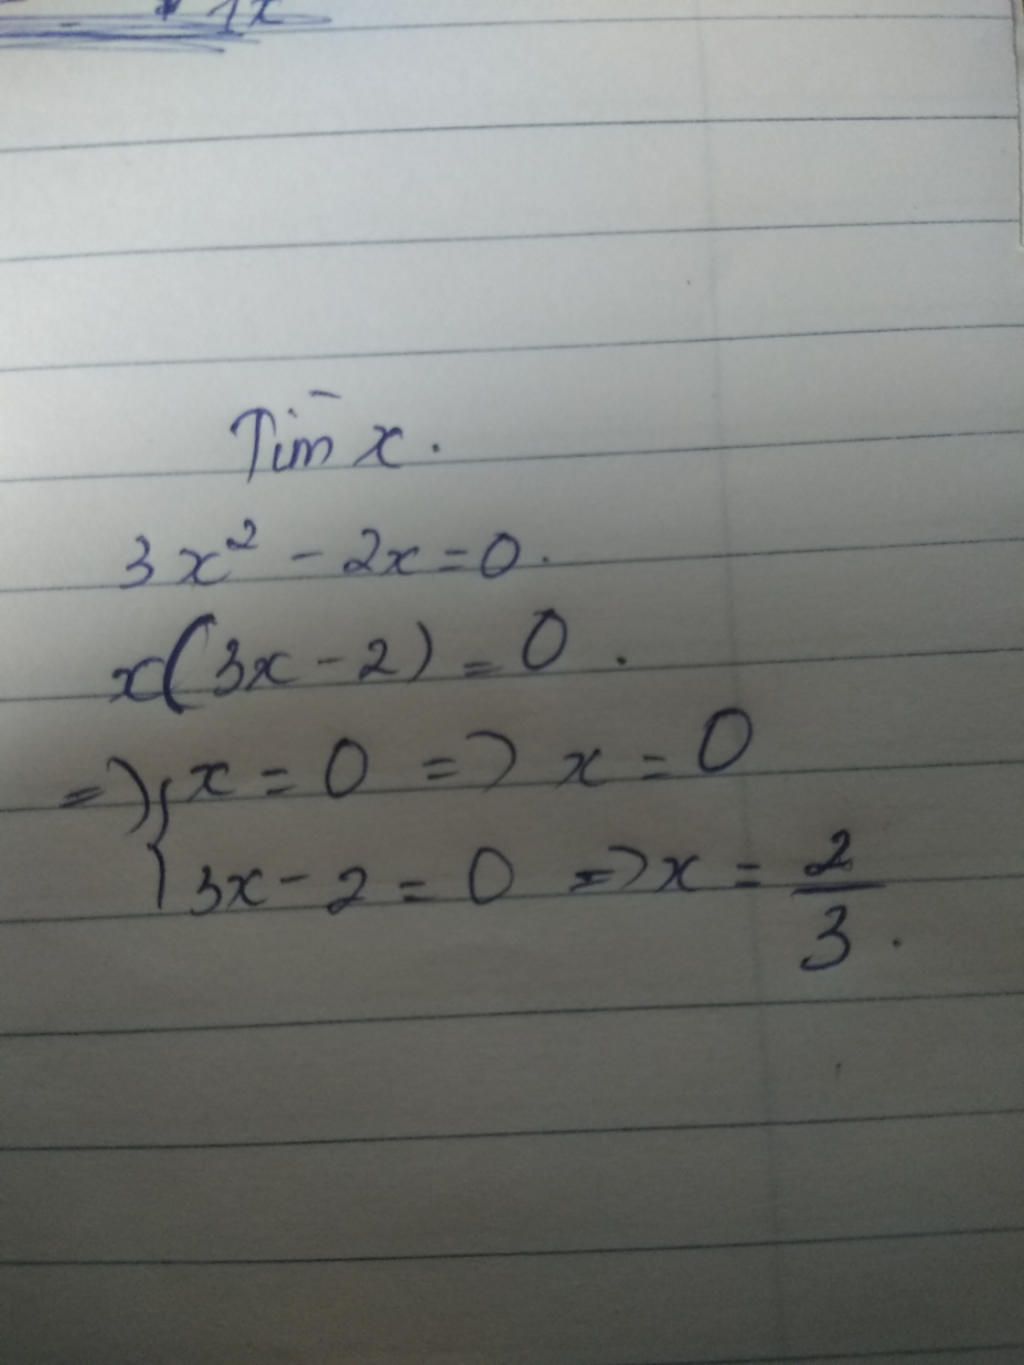 1x
Tim x.
3x² - 2x = 0.
x(3x - 2) = 0.
=> { x = 0 => x = 0
3x - 2 = 0 => x = 2/3.